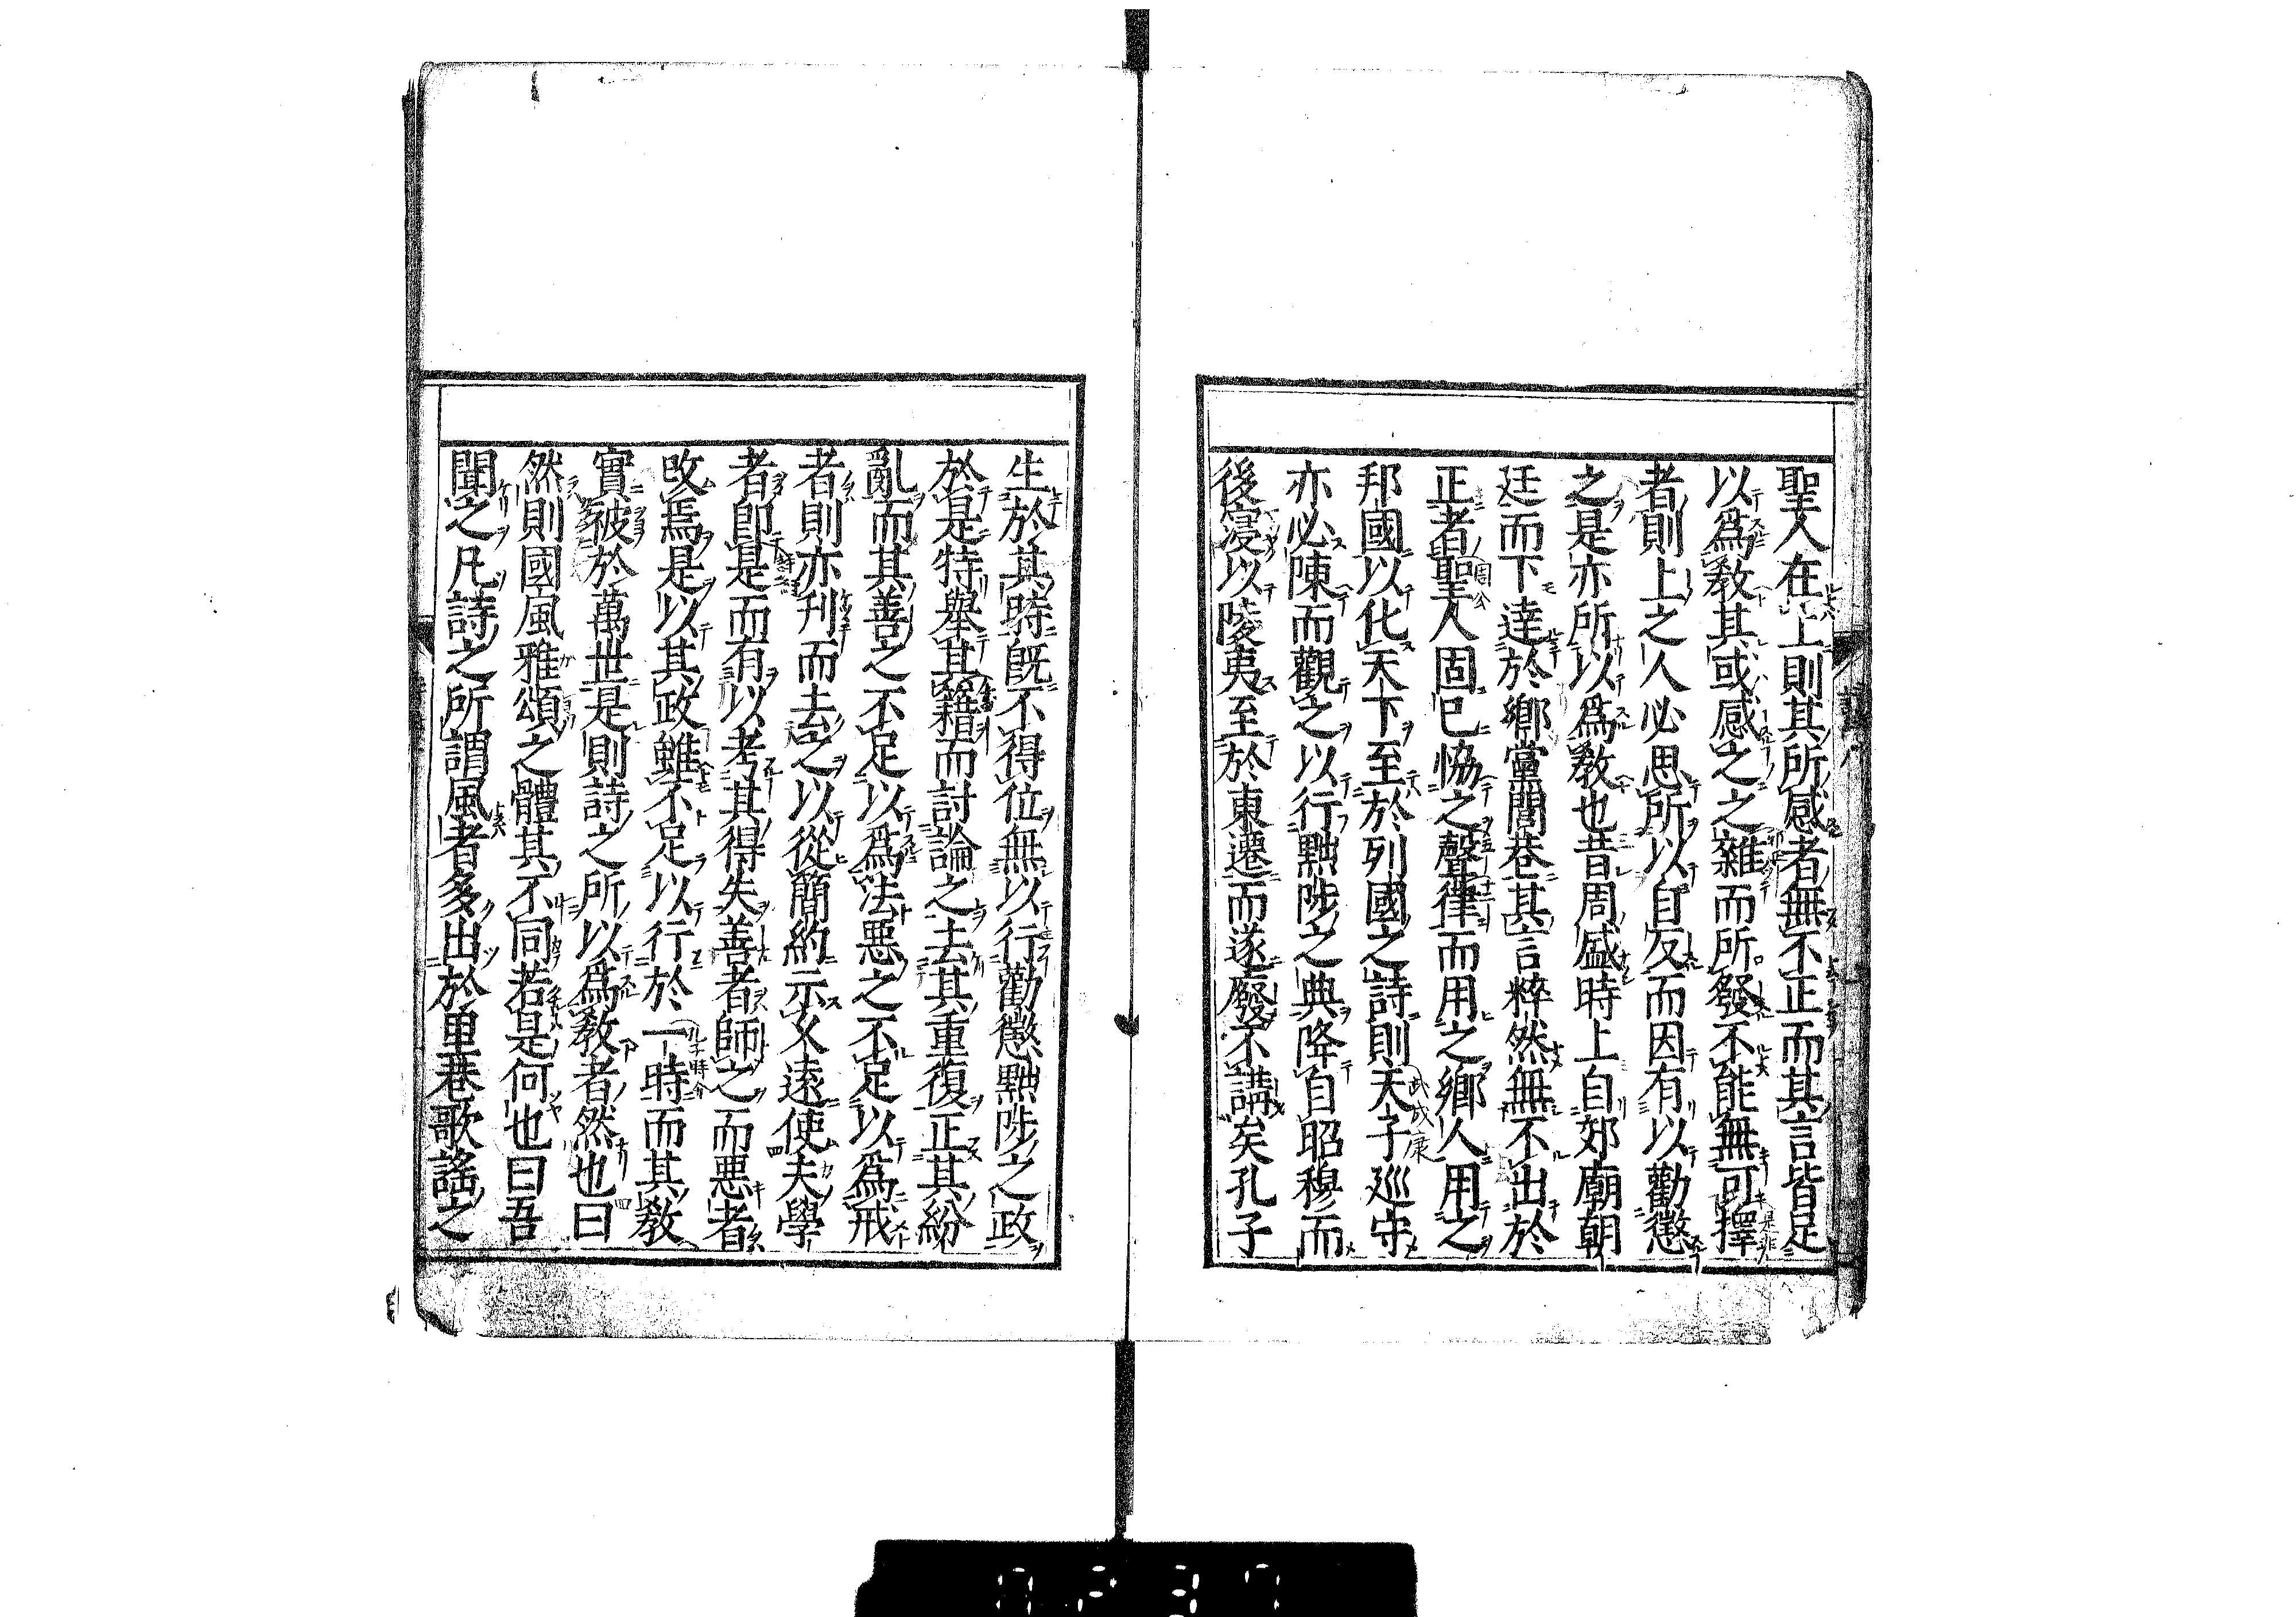 聖人在上則其所感者無不正而其言皆足
以爲教其或感之之雜而所發不能無可擇
者則上之人必思所以自反而因有以勸懲
之是亦所以爲教也昔周盛時上自郊廟朝
廷而下達於鄉黨閭巷其言粹然無不出於
正者聖人固已恊之聲律而用之鄉人用之
邦國以化天下至於列國之詩則天子廵守
亦必陳而觀之以行黜陟之典降自昭穆而
後寖以陵夷至於東遷而遂廢不講矣孔子
生於其時既不得位無以行勸懲黜陟之政
於是特舉其籍而討論之去其重復正其紛
亂而其善之不足以爲法惡之不足以爲戒
者則亦刋而去之以從簡約示久遠使夫學
者即是而有以考其得失善者師之而惡者
改焉是以其政雖不足以行於一時而其教
實被於萬世是則詩之所以爲教者然也曰
然則國風雅頌之體其不同若是何也曰吾
聞之凡詩之所謂風者多出於里巷歌謡之